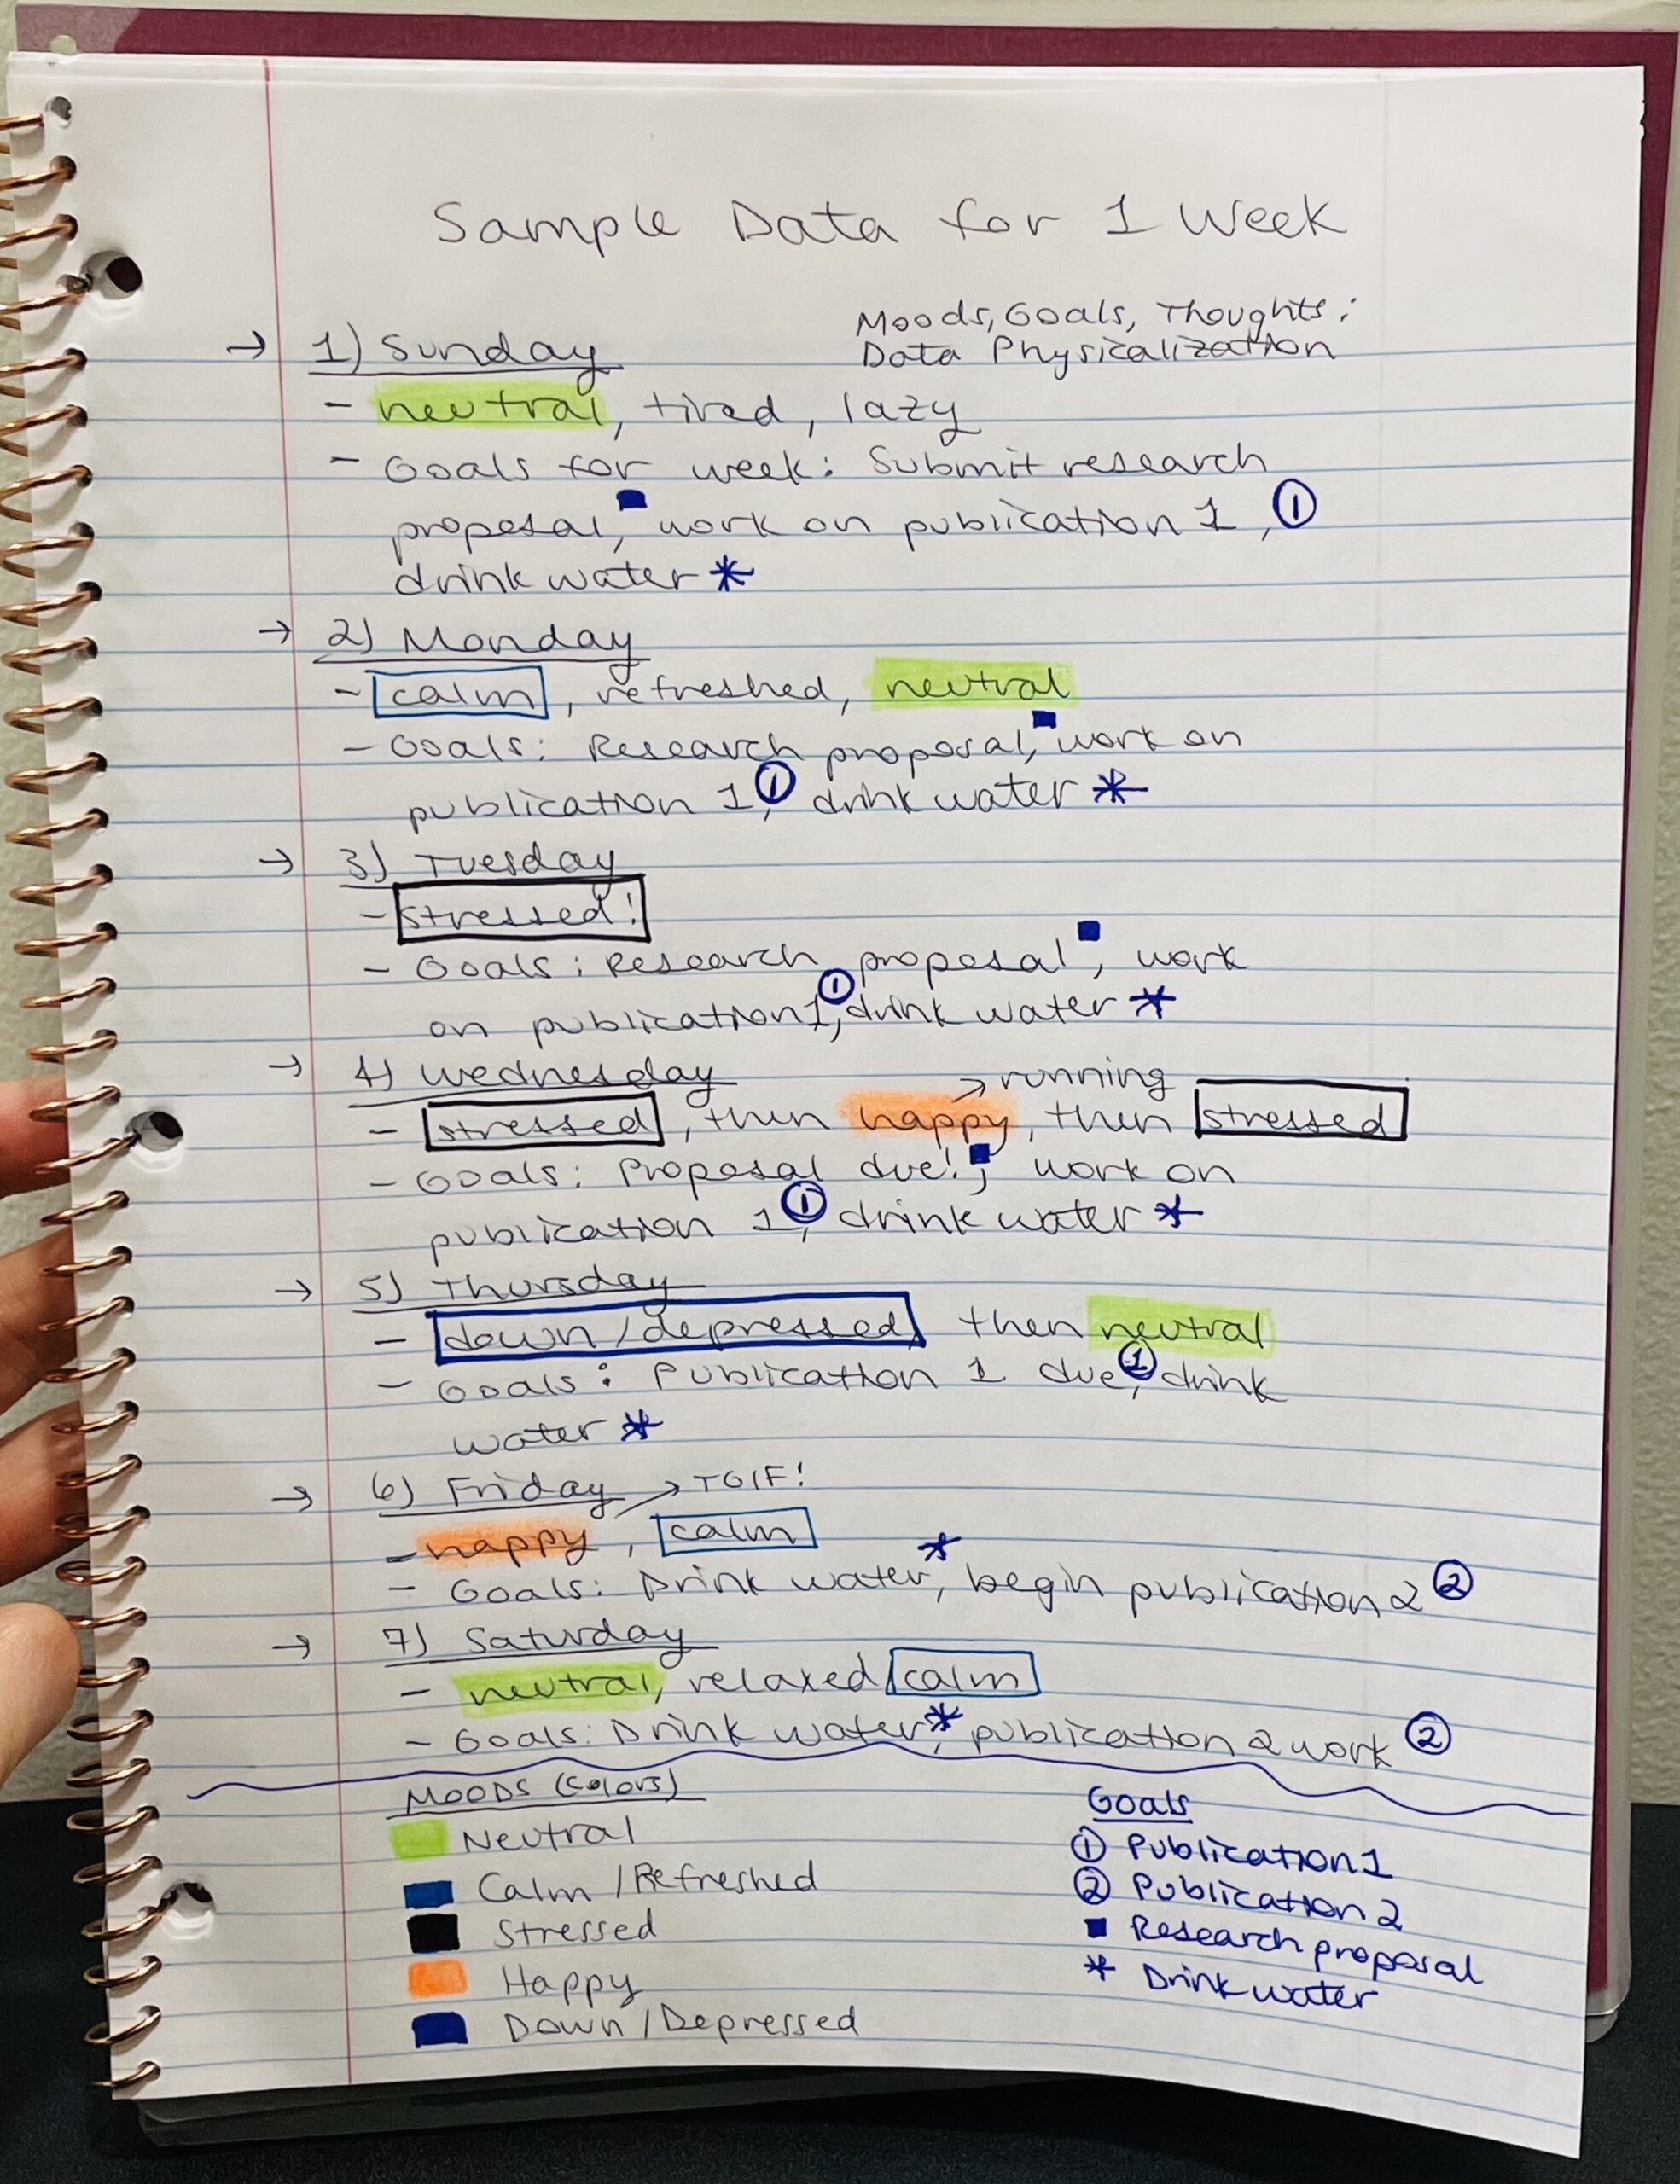 Sample Data for 1 Week
Moods, Goals, Thoughts:
Data Physicalization
→ 1) Sunday
- neutral, tired, lazy
- Goals for week: Submit research
proposal, ■ work on publication 1, ①
drink water *
→ 2) Monday
- calm, refreshed, neutral
- Goals: Research proposal, ■ work on
publication 1, ① drink water *
→ 3) Tuesday
- stressed!
- Goals: Research proposal ■, work
on publication 1, ① drink water *
→ 4) Wednesday
→ running
- stressed, then happy, then stressed
- Goals: Proposal due! ■, work on
publication 1, ① drink water *
→ 5) Thursday
- down/depressed, then neutral
- Goals: Publication 1 due, ① drink
water *
→ 6) Friday → TGIF!
- happy, calm
- Goals: Drink water, * begin publication 2 ②
→ 7) Saturday
- neutral, relaxed calm
- Goals: Drink water, * publication 2 work ②
MOODS (colors)
Neutral
Calm/Refreshed
Stressed
Happy
Down/Depressed
Goals
① Publication 1
② Publication 2
■ Research proposal
* Drink water